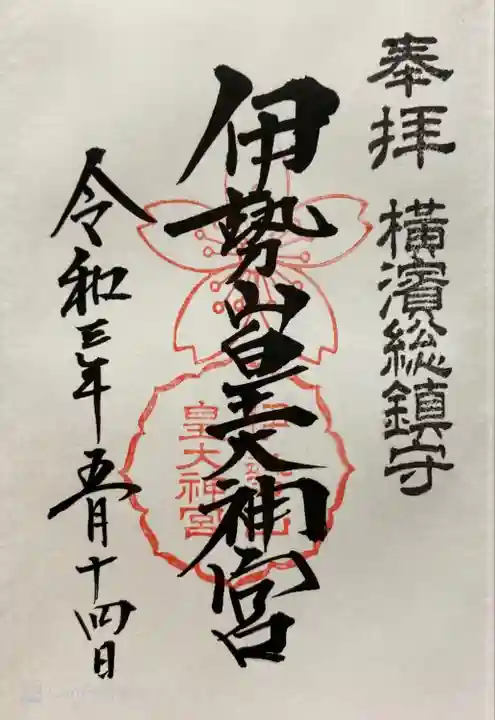 奉拝 横濱総鎮守
伊勢山皇大神宮
伊勢山
皇大神宮
令和三年五月十四日